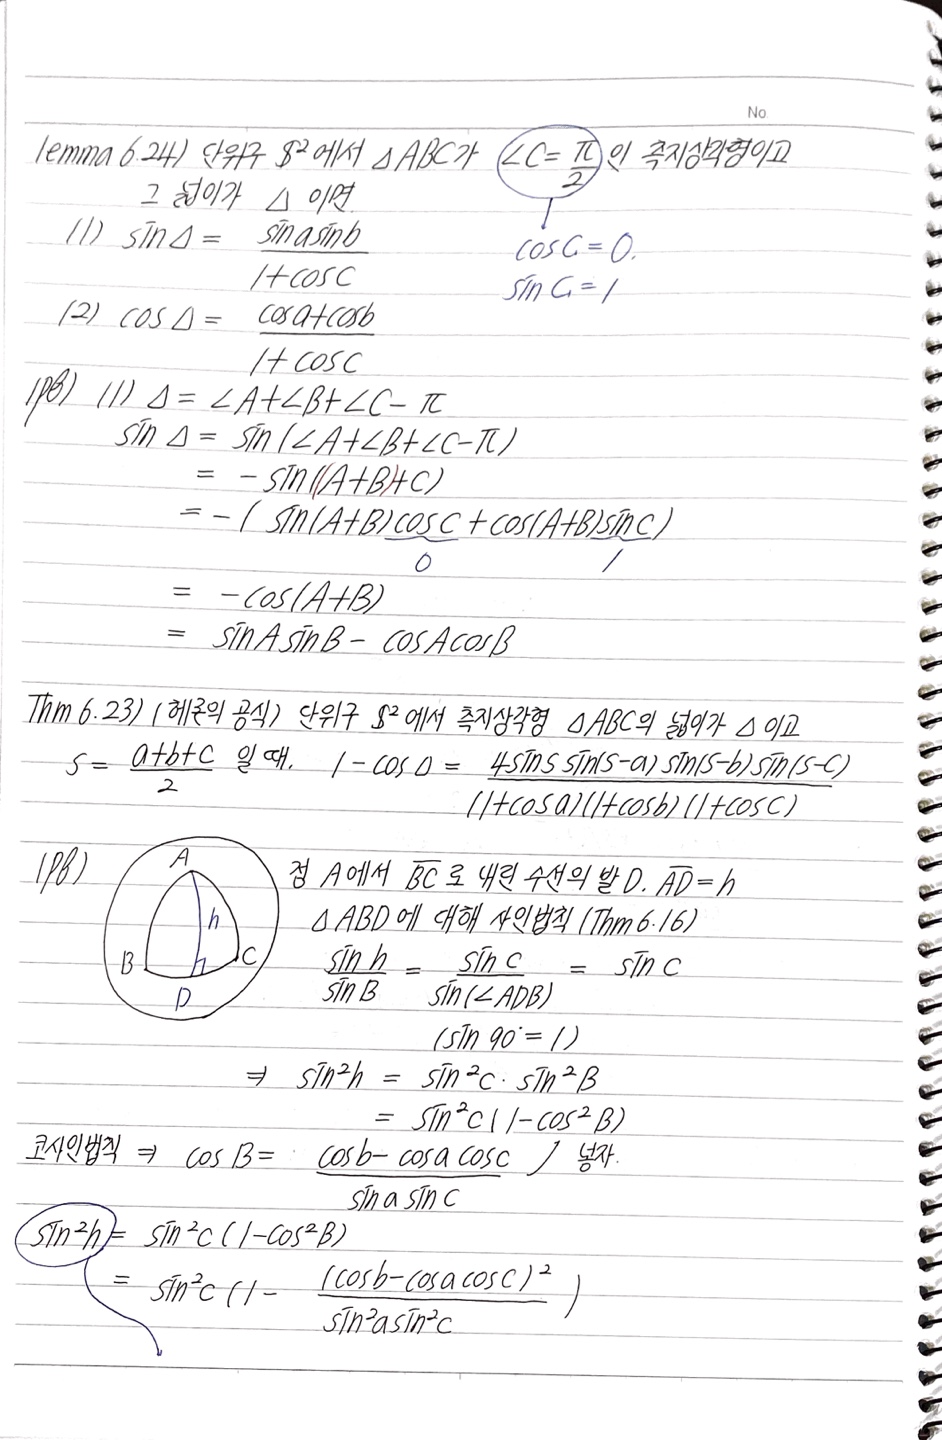 No
lemma 6.24) 단위구 $² 에서 △ABC가 ∠C = π/2 인 측지삼각형이고
그 넓이가 △ 이면
cos C = 0.
sin C = 1
(1) sin△ = sina sinb / 1+cosc
(2) cos△ = cosa+cosb / 1+cosc
(pf) (1) △ = ∠A+∠B+∠C-π
sin△ = sin(∠A+∠B+∠C-π)
= -sin((A+B)+C)
= -( sin(A+B)cosC + cos(A+B)sinC)
0 1
= -cos(A+B)
= sinA sinB - cosA cosB
Thm 6.23) (헤론의 공식) 단위구 $² 에서 측지삼각형 △ABC의 넓이가 △ 이고
s = a+b+c / 2 일 때, 1-cos△ = 4sins sin(s-a) sin(s-b) sin(s-c) / (1+cosa)(1+cosb)(1+cosc)
(pf) 점 A에서 BC로 내린 수선의 발 D. AD = h
A
h
B
C
h
D
△ABD에 대해 사인법칙 (Thm 6.16)
sin h / sin B = sin c / sin(∠ADB) = sin c
(sin 90° = 1)
⇒ sin²h = sin²c · sin²B
= sin²c (1-cos²B)
코사인법칙 ⇒ cos B = cosb - cosa cosc / sina sinc ) 넣자.
sin²h = sin²c (1-cos²B)
= sin²c (1 - (cosb-cosa cosc)² / sin²a sin²c )